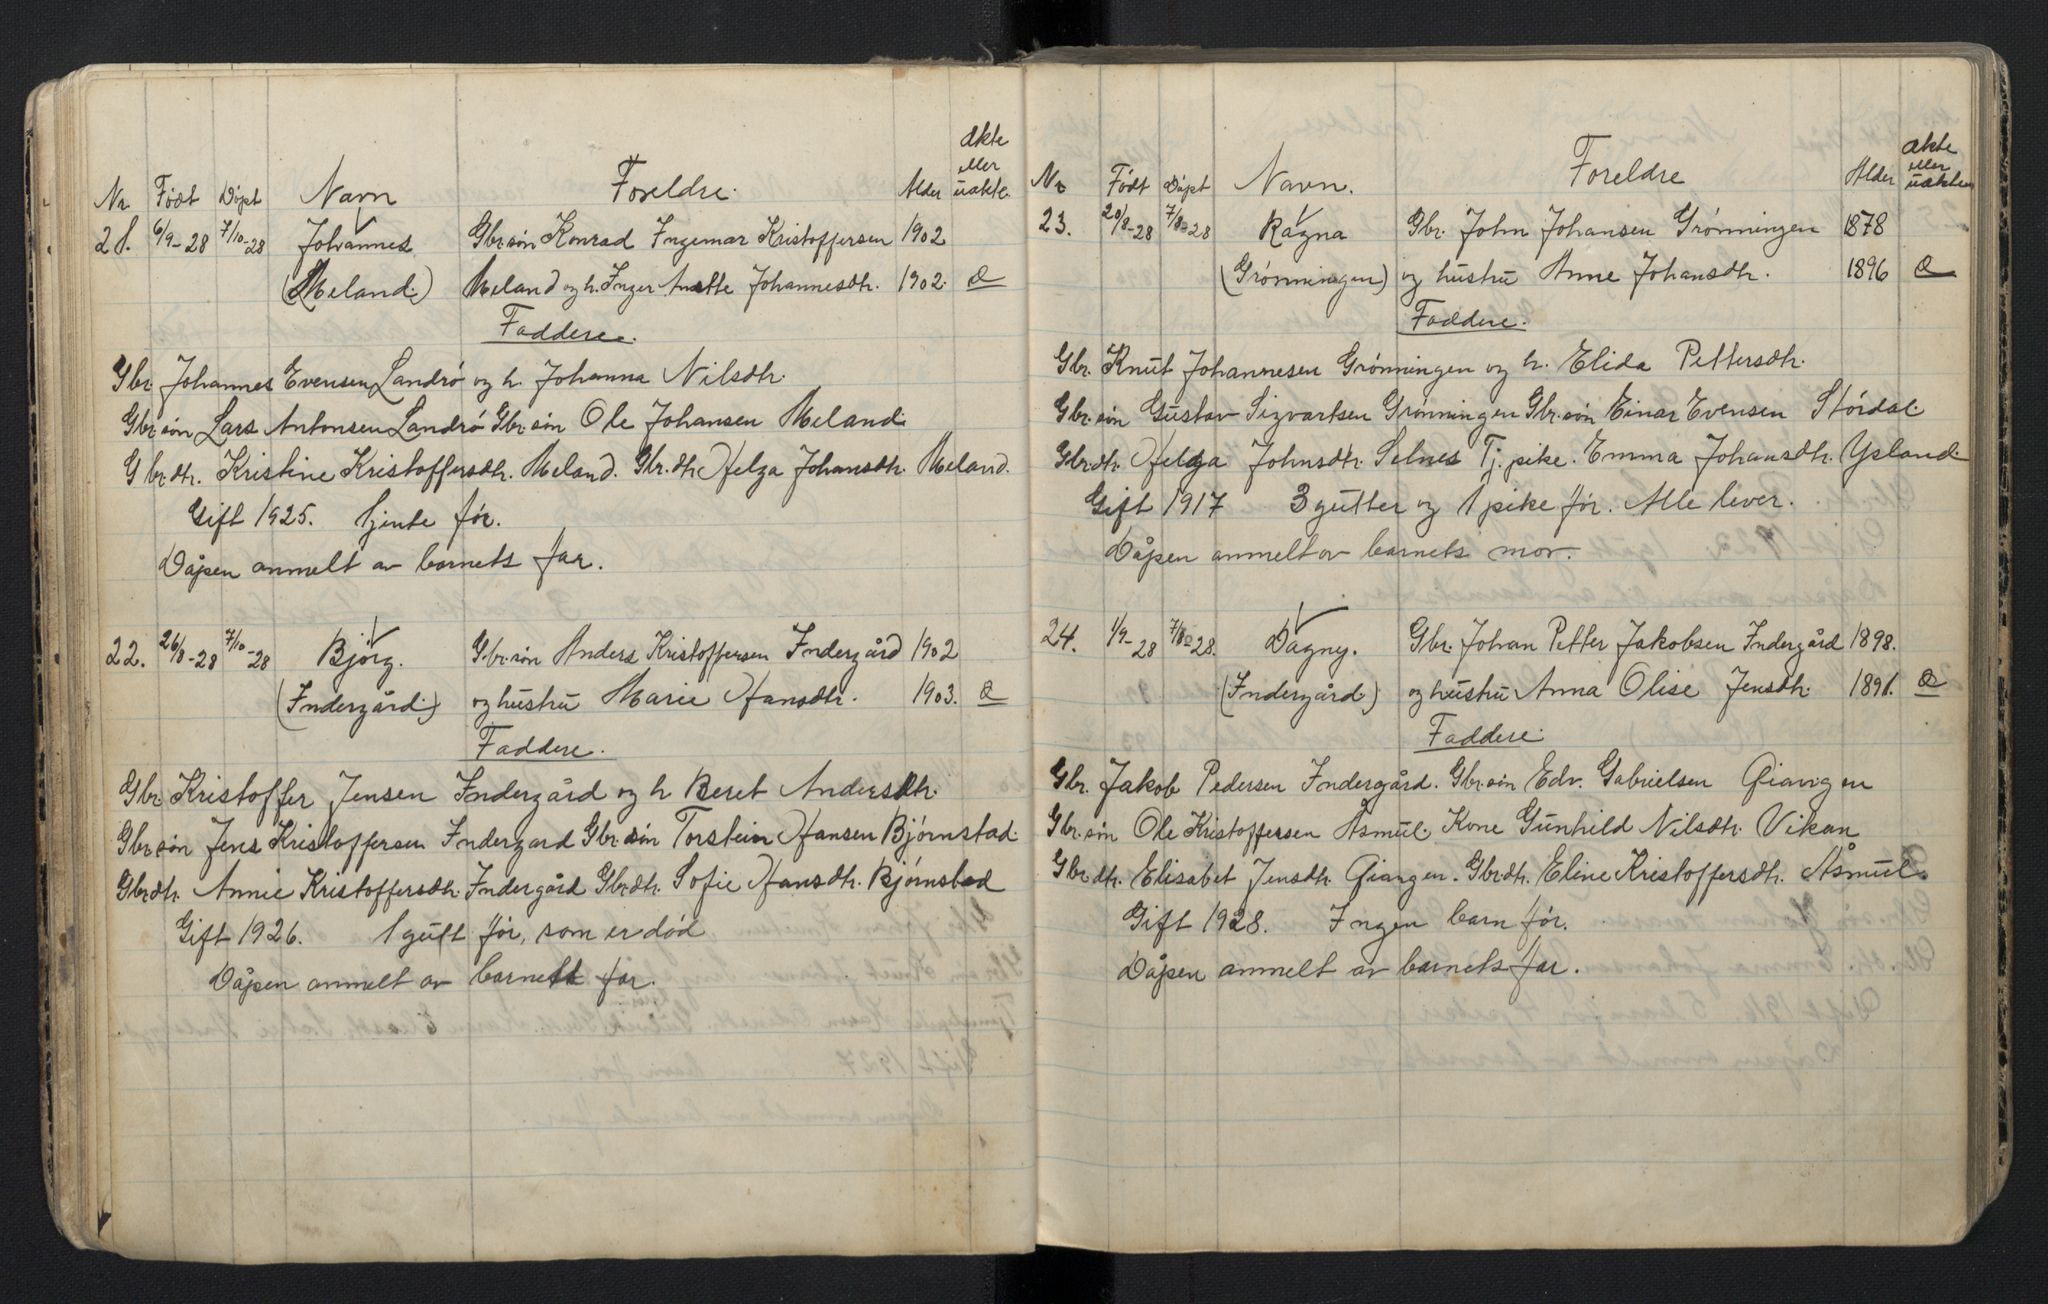 Nr. Født Døpt Navn Foreldre. Alder ækte eller uækte.
21. 6/9-28 7/10-28 Johannes Gbr.søn Konrad Ingemar Kristoffersen 1902
(Meland.) Meland og h. Inger Anette Johannesdtr. 1902. Æ
Faddere.
Gbr. Johannes Evensen Landrø og h. Johanna Nilsdtr.
Gbr.søn Lars Antonsen Landrø Gbr.søn Ole Johansen Meland.
Gbr.dtr. Kristine Kristoffersdtr. Meland. Gbr.dtr. Helga Johansdtr. Meland.
Gift 1925. 1 jente før.
Dåpen anmelt av barnets far.
22. 26/8-28 7/10-28 Bjørg. Gbr.søn Anders Kristoffersen Indergård 1902
(Indergård.) og hustru Marie Hansdtr. 1903. Æ
Faddere.
Gbr. Kristoffer Jensen Indergård og h Beret Andersdtr.
Gbr.søn Jens Kristoffersen Indergard Gbr.søn Torstein Hansen Bjørnstad.
Gbr.dtr. Annie Kristoffersdtr. Indergård Gbr.dtr. Sofie Hansdtr. Bjørnstad
Gift 1926. 1 gutt før, som er død
Dåpen anmelt av barnets far.
Nr Født Døpt Navn. Foreldre Alder ækte eller uækten
23. 20/8-28 28 Ragna Gbr. John Johansen Grønningen 1878
(Grønningen) og hustru Anne Johansdtr. 1896 Æ
Faddere.
Gbr. Knut Johannesen Grønningen og h. Elida Pettersdtr.
Gbr.søn Gustav Sigvartsen Grønningen Gbr.søn Einar Evensen Størdal.
Gbr.dtr. Helga Johnsdtr. Selnes Tj. pike. Emma Johansdtr. Ysland.
Gift 1917 3 gutter og 1 pike før. Alle lever.
Dåpen anmelt av barnets mor.
24. 1/9-28 28. Dagny. Gbr. Johan Petter Jakobsen Indergård 1898.
(Indergård.) og hustru Anna Olise Jensdtr. 1891. Æ
Faddere.
Gbr. Jakob Pedersen Indergård. Gbr.søn Edv. Gabrielsen Qiangen
Gbr.søn Ole Kristoffersen Åsmul. Kone Gunhild Nilsdtr. Vikan
Gbr.dtr. Elisabet Jensdtr. Qiangen. Gbr.dtr. Eline Kristoffersdtr. Åsmul.
Gift 1928. Ingen barn før.
Dåpen anmelt av barnets far.